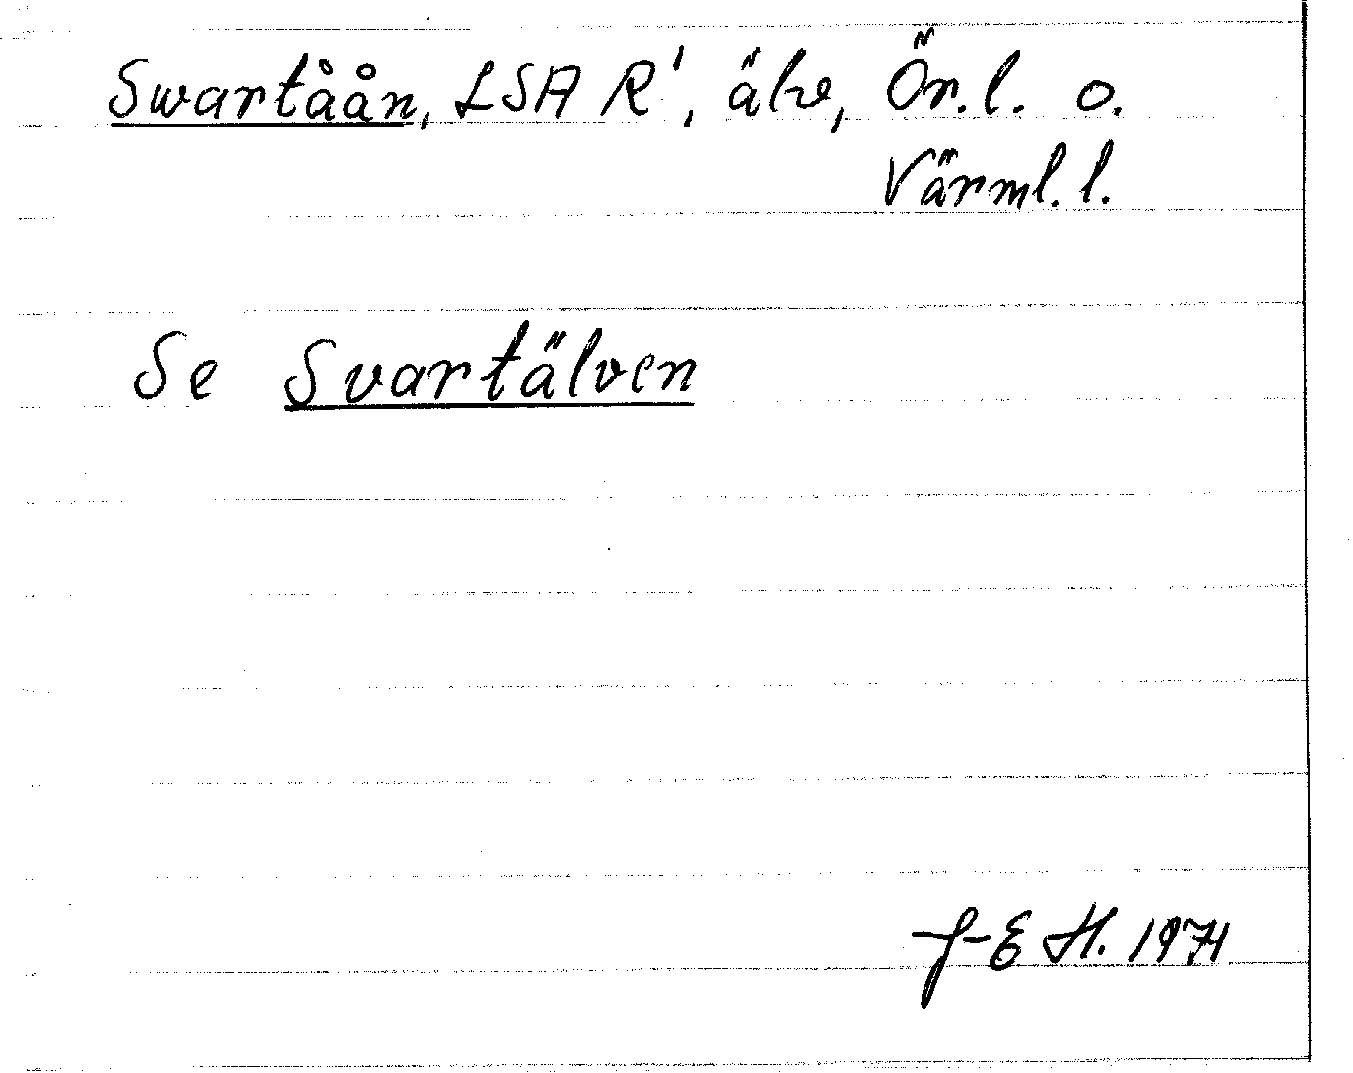 Swartåån, LSA R¹, älv, Ör.l. o.
Värml. l.
Se Svartälven
J-E H. 1971